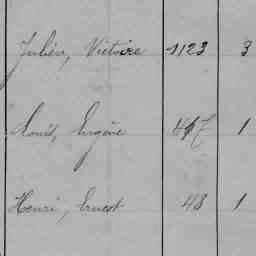 Julien, Victoire 1123 3
Louis, Eugène 417 1
Henri, Ernest 48 1